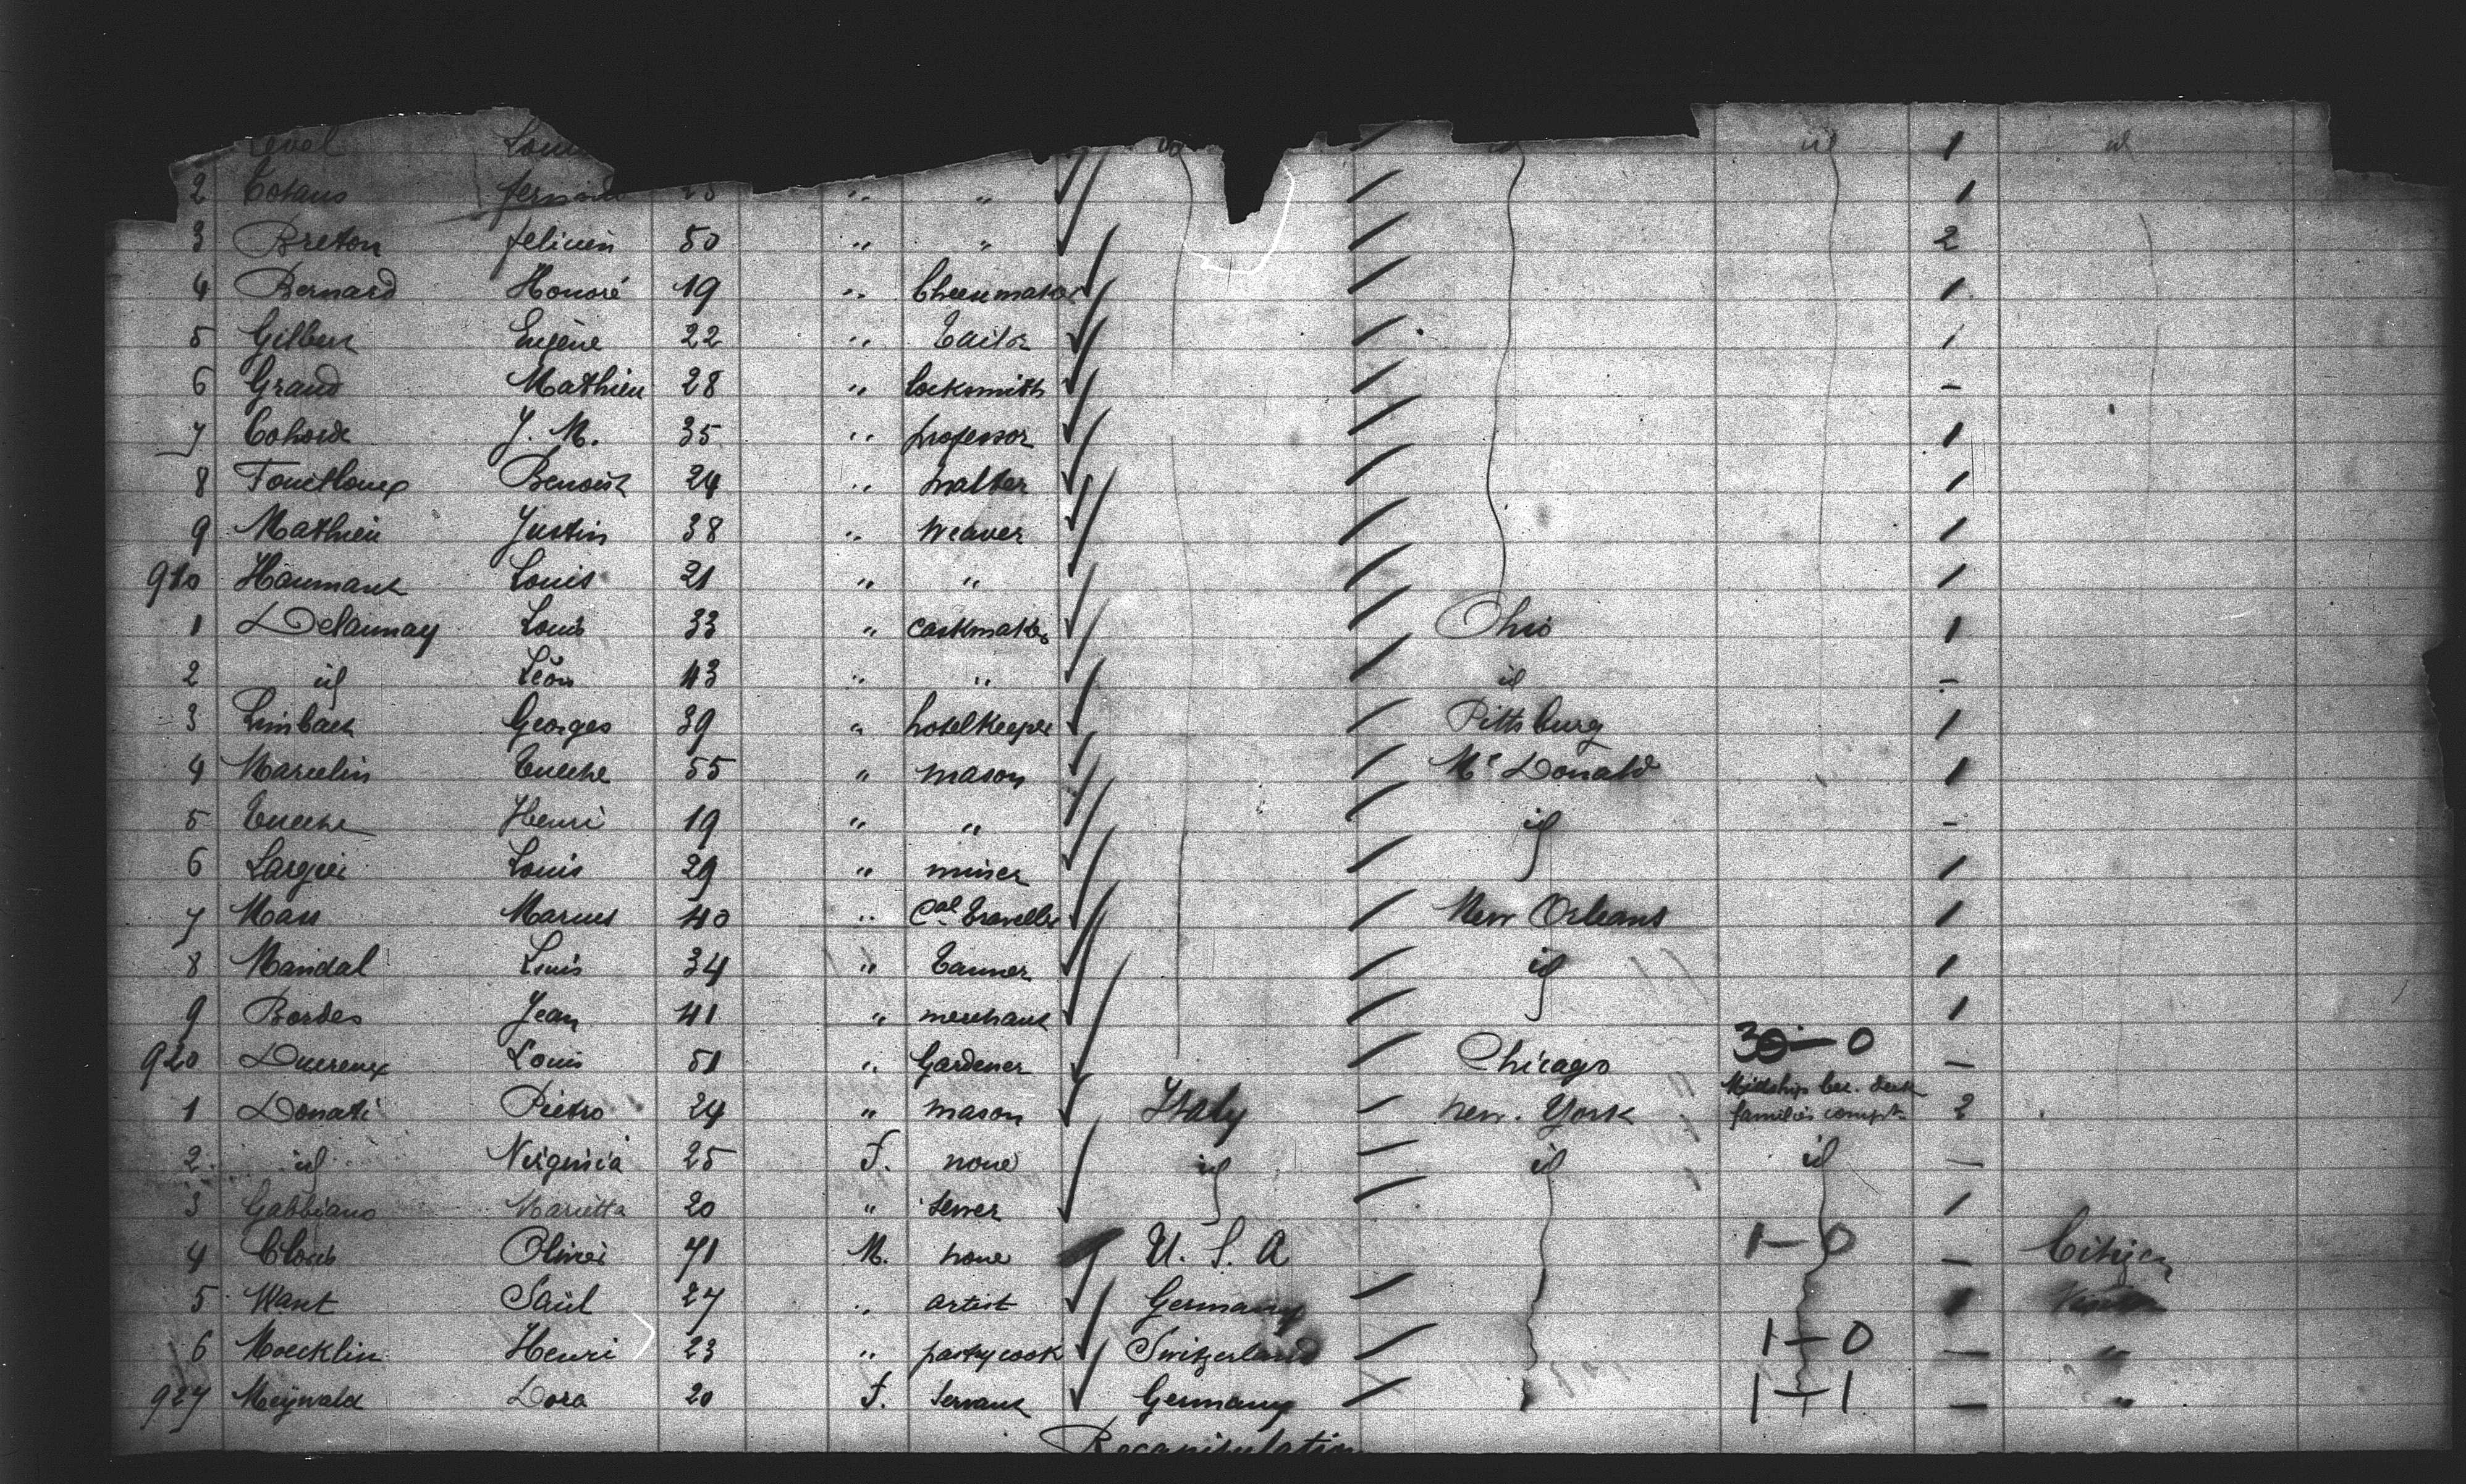 Level Loui id 1 id
2 Cohaus fernand " " 1
3 Breton felicien 50 " " 2
4 Bernard Honoré 19 " Cheesemaker 1
5 Gilbert Eugène 22 " Tailor 1
6 Grand Mathieu 28 " locksmith -
7 J. M. 35 " professor 1
8 Benoist 24 " 1
9 Mathieu Justin 38 " Weaver 1
910 Haumant Louis 21 " " 1
1 Delaunay Louis 33 " caskmaker Ohio 1
2 id Léon 43 " " id -
3 Limbach Georges 39 " hotelkeeper Pittsburg 1
4 Marcelin 55 " mason Mc Donald 1
5 Henri 19 " " id -
6 Largier Louis 29 " miner 1
7 Mass Marius 40 " Cal Traveller New Orleans 1
8 Mandal Louis 34 " Tanner id 1
9 Bordes Jean 41 " merchant 1
30-0
920 Ducreux Louis 51 " Gardener Chicago -
Midship bet. deck
1 Donati Pietro 24 " mason Italy New. York families compt 2
2 id Virginia 25 F. none id id id -
3 Gabbiano Marietta 20 " sewer 1
1-0
4 Olivier 71 M. none U. S. A - Citizen
5 Want Saül 27 " artist Germany 1
1-0
6 Moecklin Henri 23 " pastrycook Switzerland - "
1-1
927 Meywald Dora 20 F. Servant Germany - "
Recapitulation